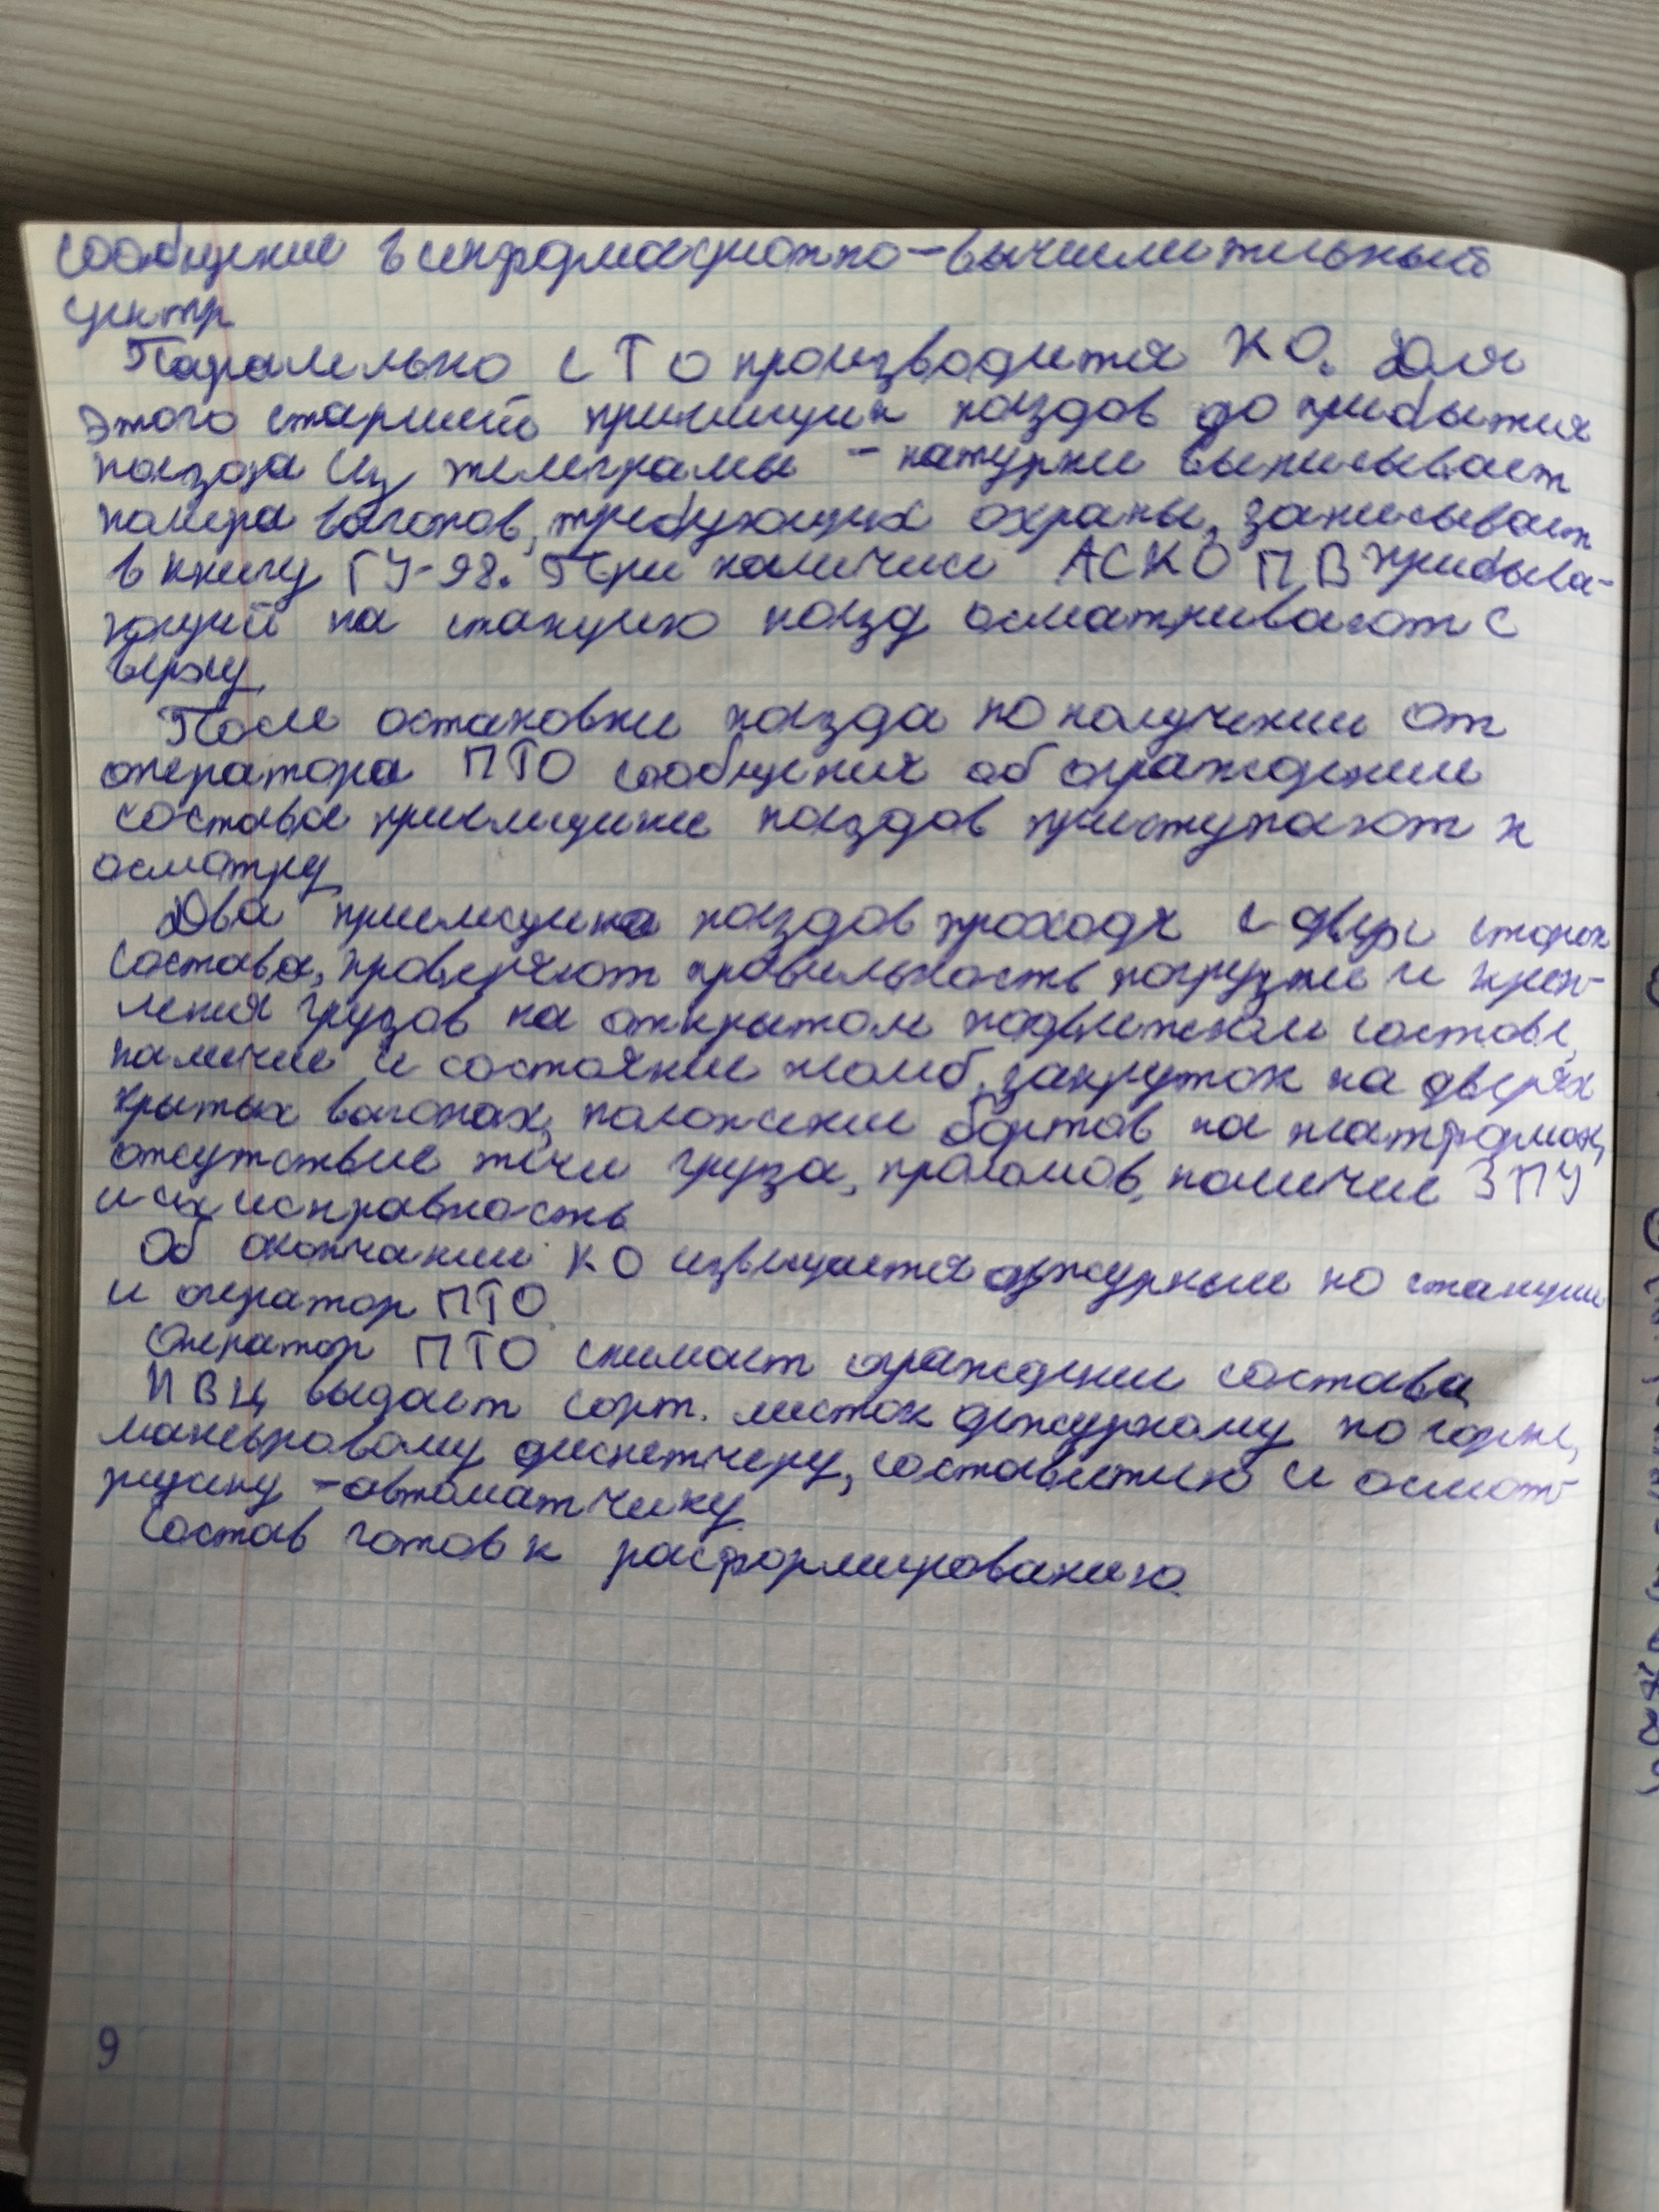 сообщение в информационно-вычислительный
центр
Паралельно с ТО производится КО. Для
этого старший приемщик поездов до прибытия
поезда из телеграмы - натурки выписывает
номера вагонов, требующих охраны, записывает
в книгу ГУ-98. При наличии АСКО ПВ прибыва-
ющий на станцию поезд осматривают с
верху.
После остановки поезда по получении от
оператора ПТО сообщения об ограждении
состава приемщики поездов приступают к
осмотру
Два приемщика поездов проходя с двух сторон
состава, проверяют правильность погрузки и креп-
ления грузов на открытом подвижном составе,
наличие и состояние пломб, закруток на дверях
крытых вагонах, положение бортов на платформах,
отсутствие течи груза, проломов, наличие ЗПУ
и их исправность
Об окончании КО извещается дежурный по станции
и оператор ПТО.
Оператор ПТО снимает ограждение состава
ИВЦ выдает сорт. листок дежурному по горке,
маневровому диспетчеру, составителю и осмот-
рщику -автоматчику.
Состав готов к расформированию.
9